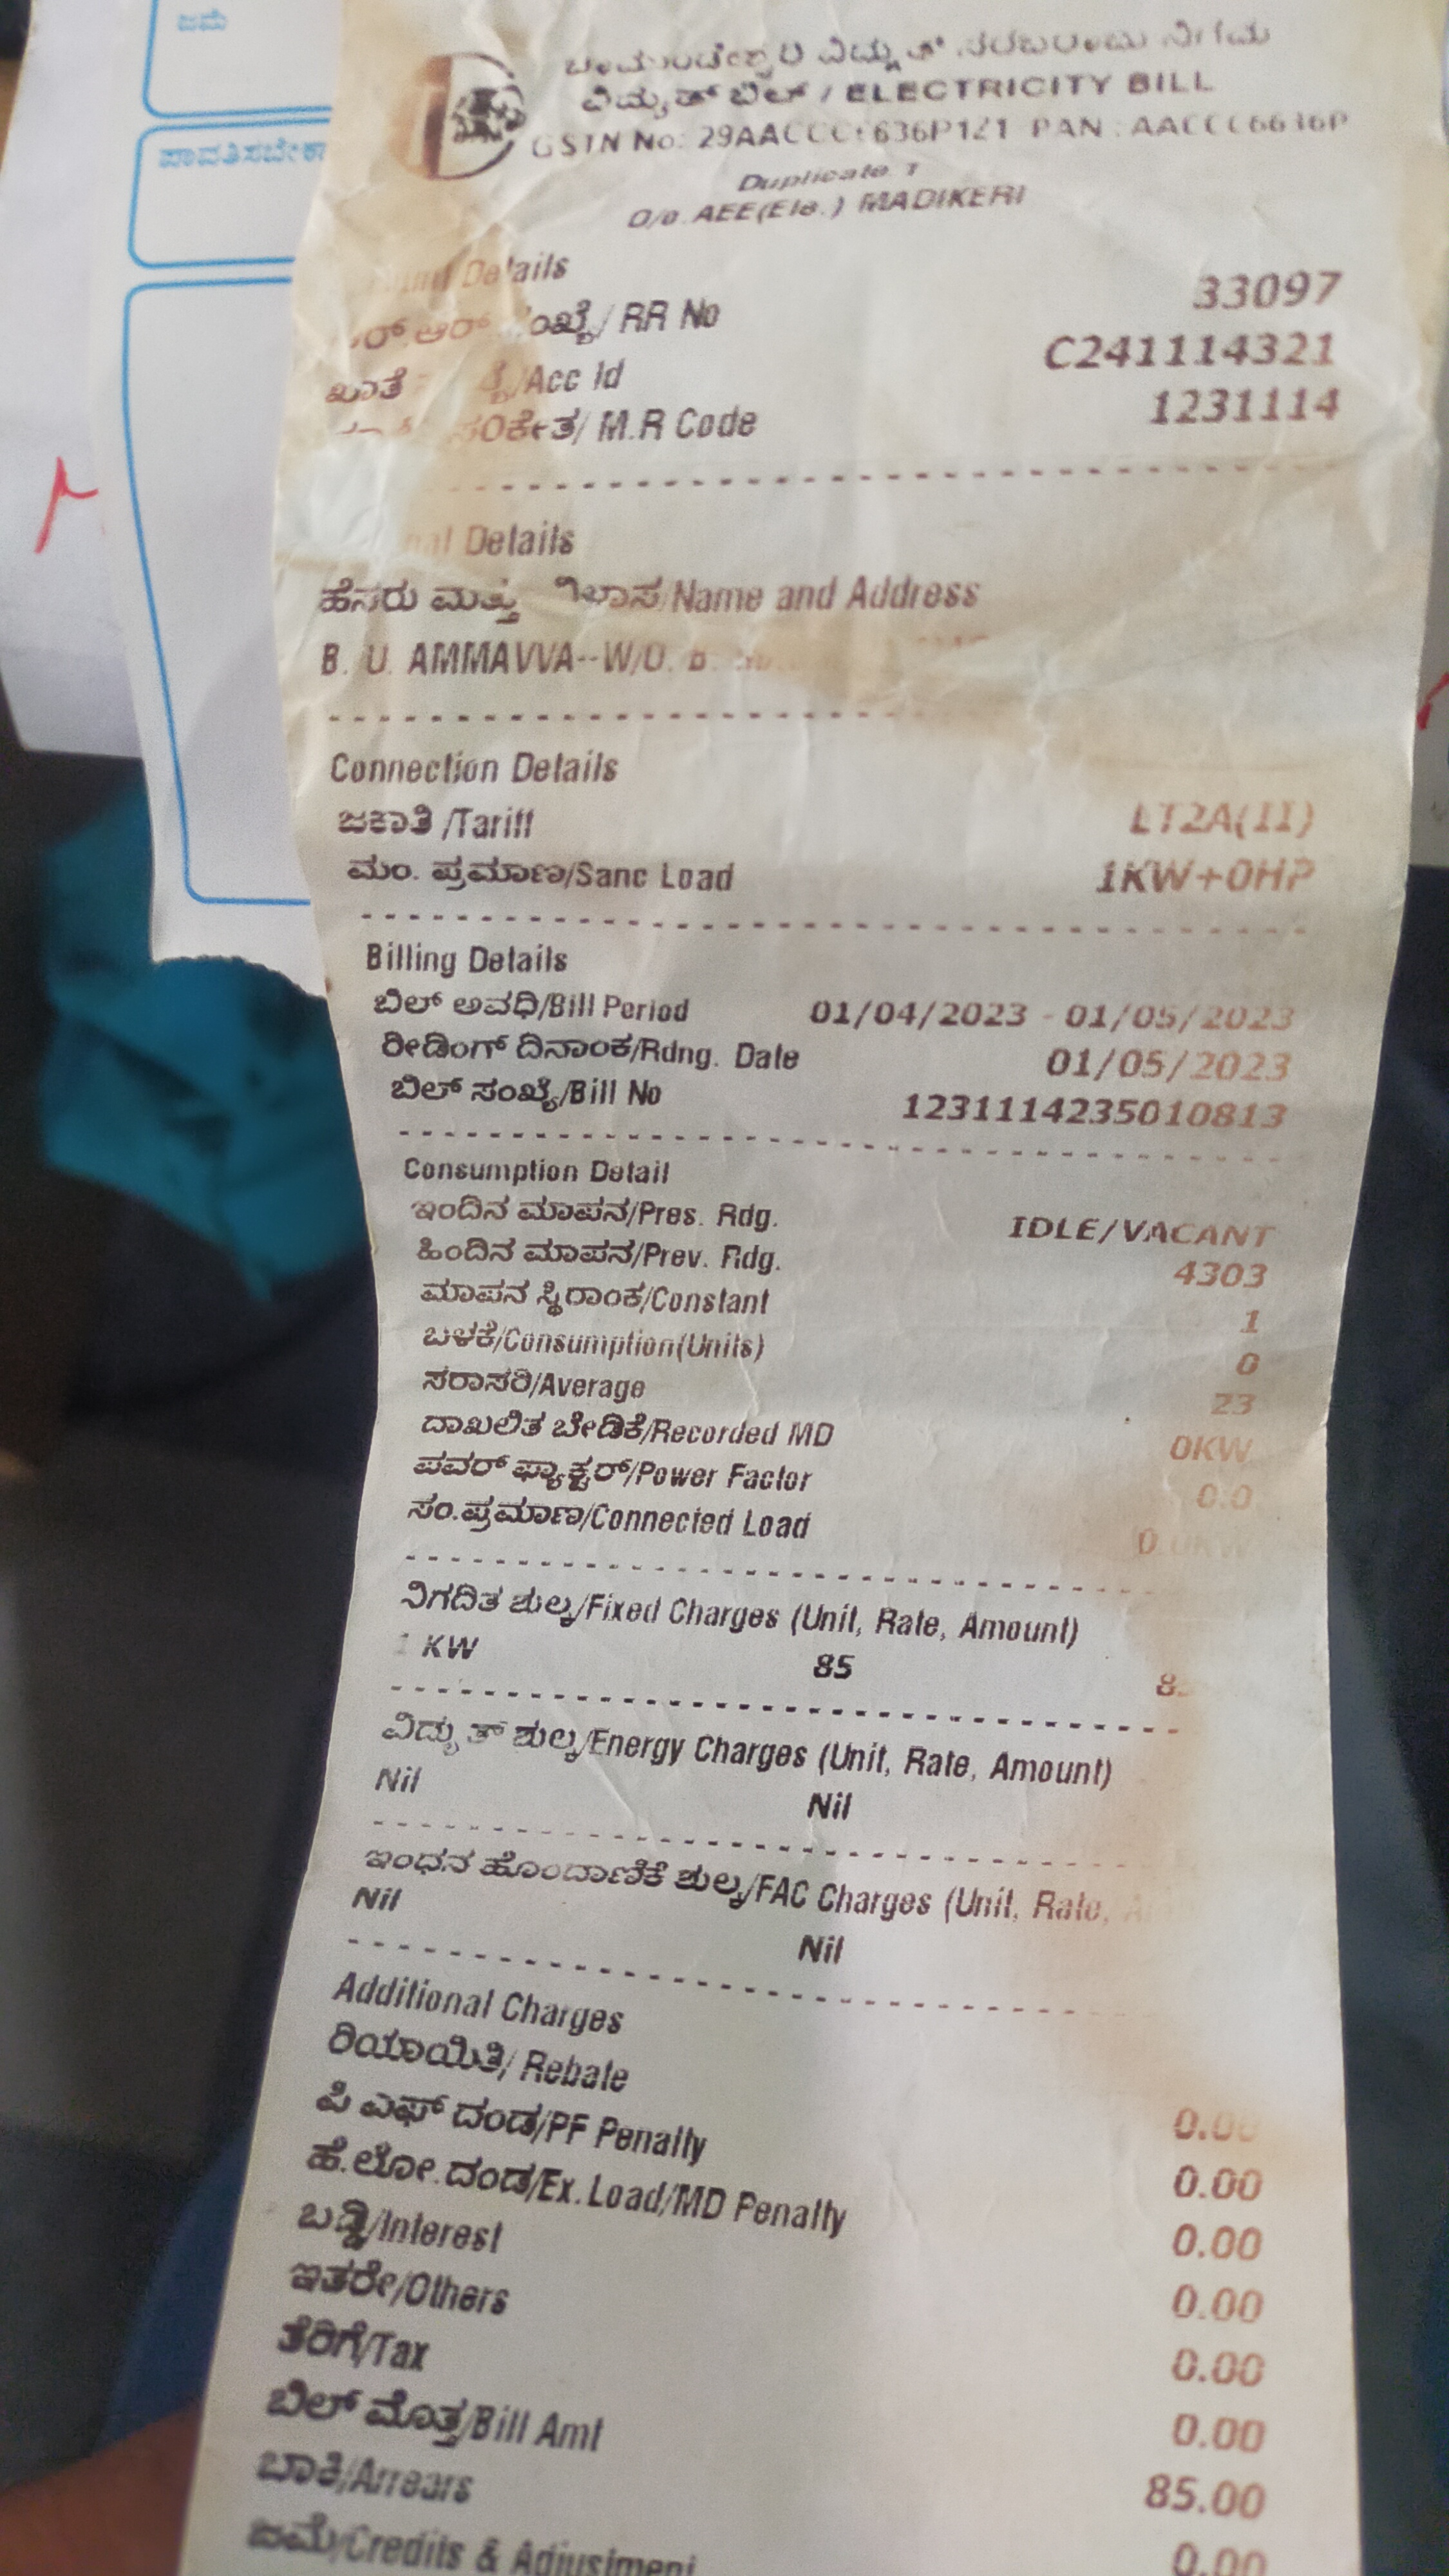 ಜಮೆ
ಚಾಮುಂಡೇಶ್ವರಿ ವಿದ್ಯುತ್ ಸರಬರಾಜು ನಿಗಮ
ವಿದ್ಯುತ್ ಬಿಲ್ / ELECTRICITY BILL
GSTN No: PAN : AACCC6636P
Duplicate
O/o AEE(Ele.) MADIKERI
Details
ಆರ್ / RR No 33097
ಖಾತೆ /Acc Id C241114321
ಸಂಕೇತ/ M.R Code 1231114
Details
ಹೆಸರು ಮತ್ತು ವಿಳಾಸ/Name and Address
B. U. AMMAVVA--W/O. B.
Connection Details
ಜಕಾತಿ /Tariff LT2A(II)
ಮಂ. ಪ್ರಮಾಣ/Sanc Load 1KW+0HP
Billing Details
ಬಿಲ್ ಅವಧಿ/Bill Period 01/04/2023 - 01/05/2023
ರೀಡಿಂಗ್ ದಿನಾಂಕ/Rdng. Date 01/05/2023
ಬಿಲ್ ಸಂಖ್ಯೆ/Bill No 1231114235010813
Consumption Detail
ಇಂದಿನ ಮಾಪನ/Pres. Rdg. IDLE/VACANT
ಹಿಂದಿನ ಮಾಪನ/Prev. Rdg. 4303
ಮಾಪನ ಸ್ಥಿರಾಂಕ/Constant 1
ಬಳಕೆ/Consumption(Units) 0
ಸರಾಸರಿ/Average 23
ದಾಖಲಿತ ಬೇಡಿಕೆ/Recorded MD 0KW
ಪವರ್ ಫ್ಯಾಕ್ಟರ್/Power Factor 0.0
ಸಂ.ಪ್ರಮಾಣ/Connected Load
ನಿಗದಿತ ಶುಲ್ಕ/Fixed Charges (Unit, Rate, Amount)
1 KW 85
ವಿದ್ಯುತ್ ಶುಲ್ಕ/Energy Charges (Unit, Rate, Amount)
Nil Nil
ಇಂಧನ ಹೊಂದಾಣಿಕೆ ಶುಲ್ಕ/FAC Charges (Unit, Rate,
Nil Nil
Additional Charges
ರಿಯಾಯಿತಿ/ Rebate 0.00
ಪಿ ಎಫ್ ದಂಡ/PF Penalty 0.00
ಹೆ.ಲೋ.ದಂಡ/Ex. Load/MD Penalty 0.00
ಬಡ್ಡಿ/Interest 0.00
ಇತರೇ/Others 0.00
ತೆರಿಗೆ/Tax 0.00
ಬಿಲ್ ಮೊತ್ತ/Bill Amt 85.00
ಬಾಕಿ/Arrears 0.00
ಜಮೆ/Credits & Adjustment